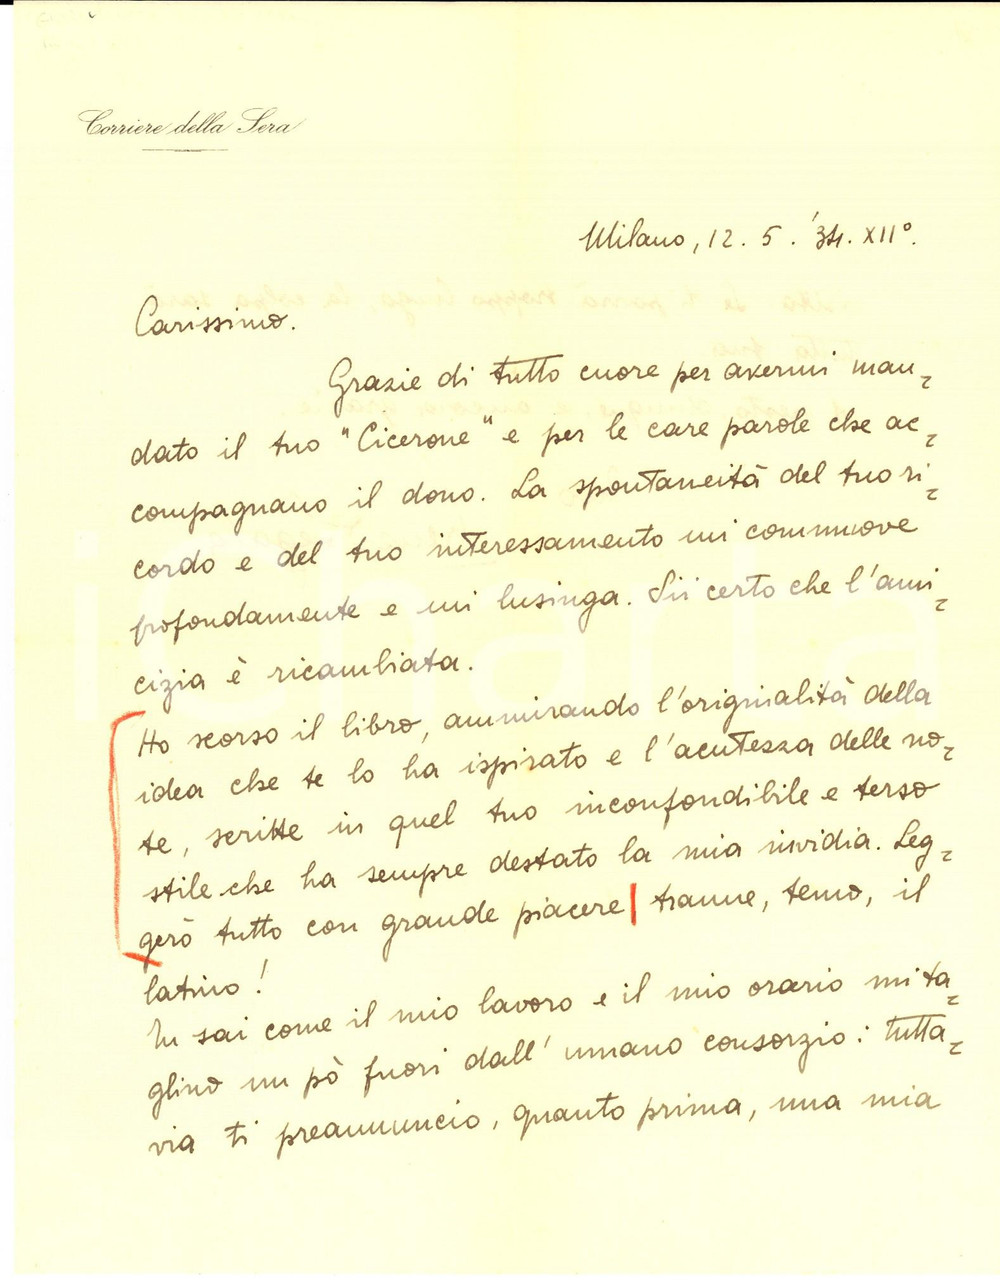 Corriere della Sera
Milano, 12. 5. '34. XII°.
Carissimo.
Grazie di tutto cuore per avermi man-
dato il tuo "Cicerone" e per le care parole che ac-
compagnano il dono. La spontaneità del tuo ri-
cordo e del tuo interessamento mi commuove
profondamente e mi lusinga. Sii certo che l'ami-
cizia è ricambiata.
Ho scorso il libro, ammirando l'originalità della
idea che te lo ha ispirato e l'acutezza delle no-
te, scritte in quel tuo inconfondibile e terso
stile che ha sempre destato la mia invidia. Leg-
gerò tutto con grande piacere tranne, temo, il
latino!
Tu sai come il mio lavoro e il mio orario mi ta-
glino un pò fuori dall'umano consorzio: tutta-
via ti preannuncio, quanto prima, una mia